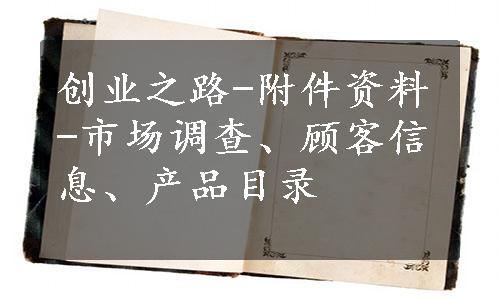 创业之路-附件资料
-市场调查、顾客信
息、产品目录